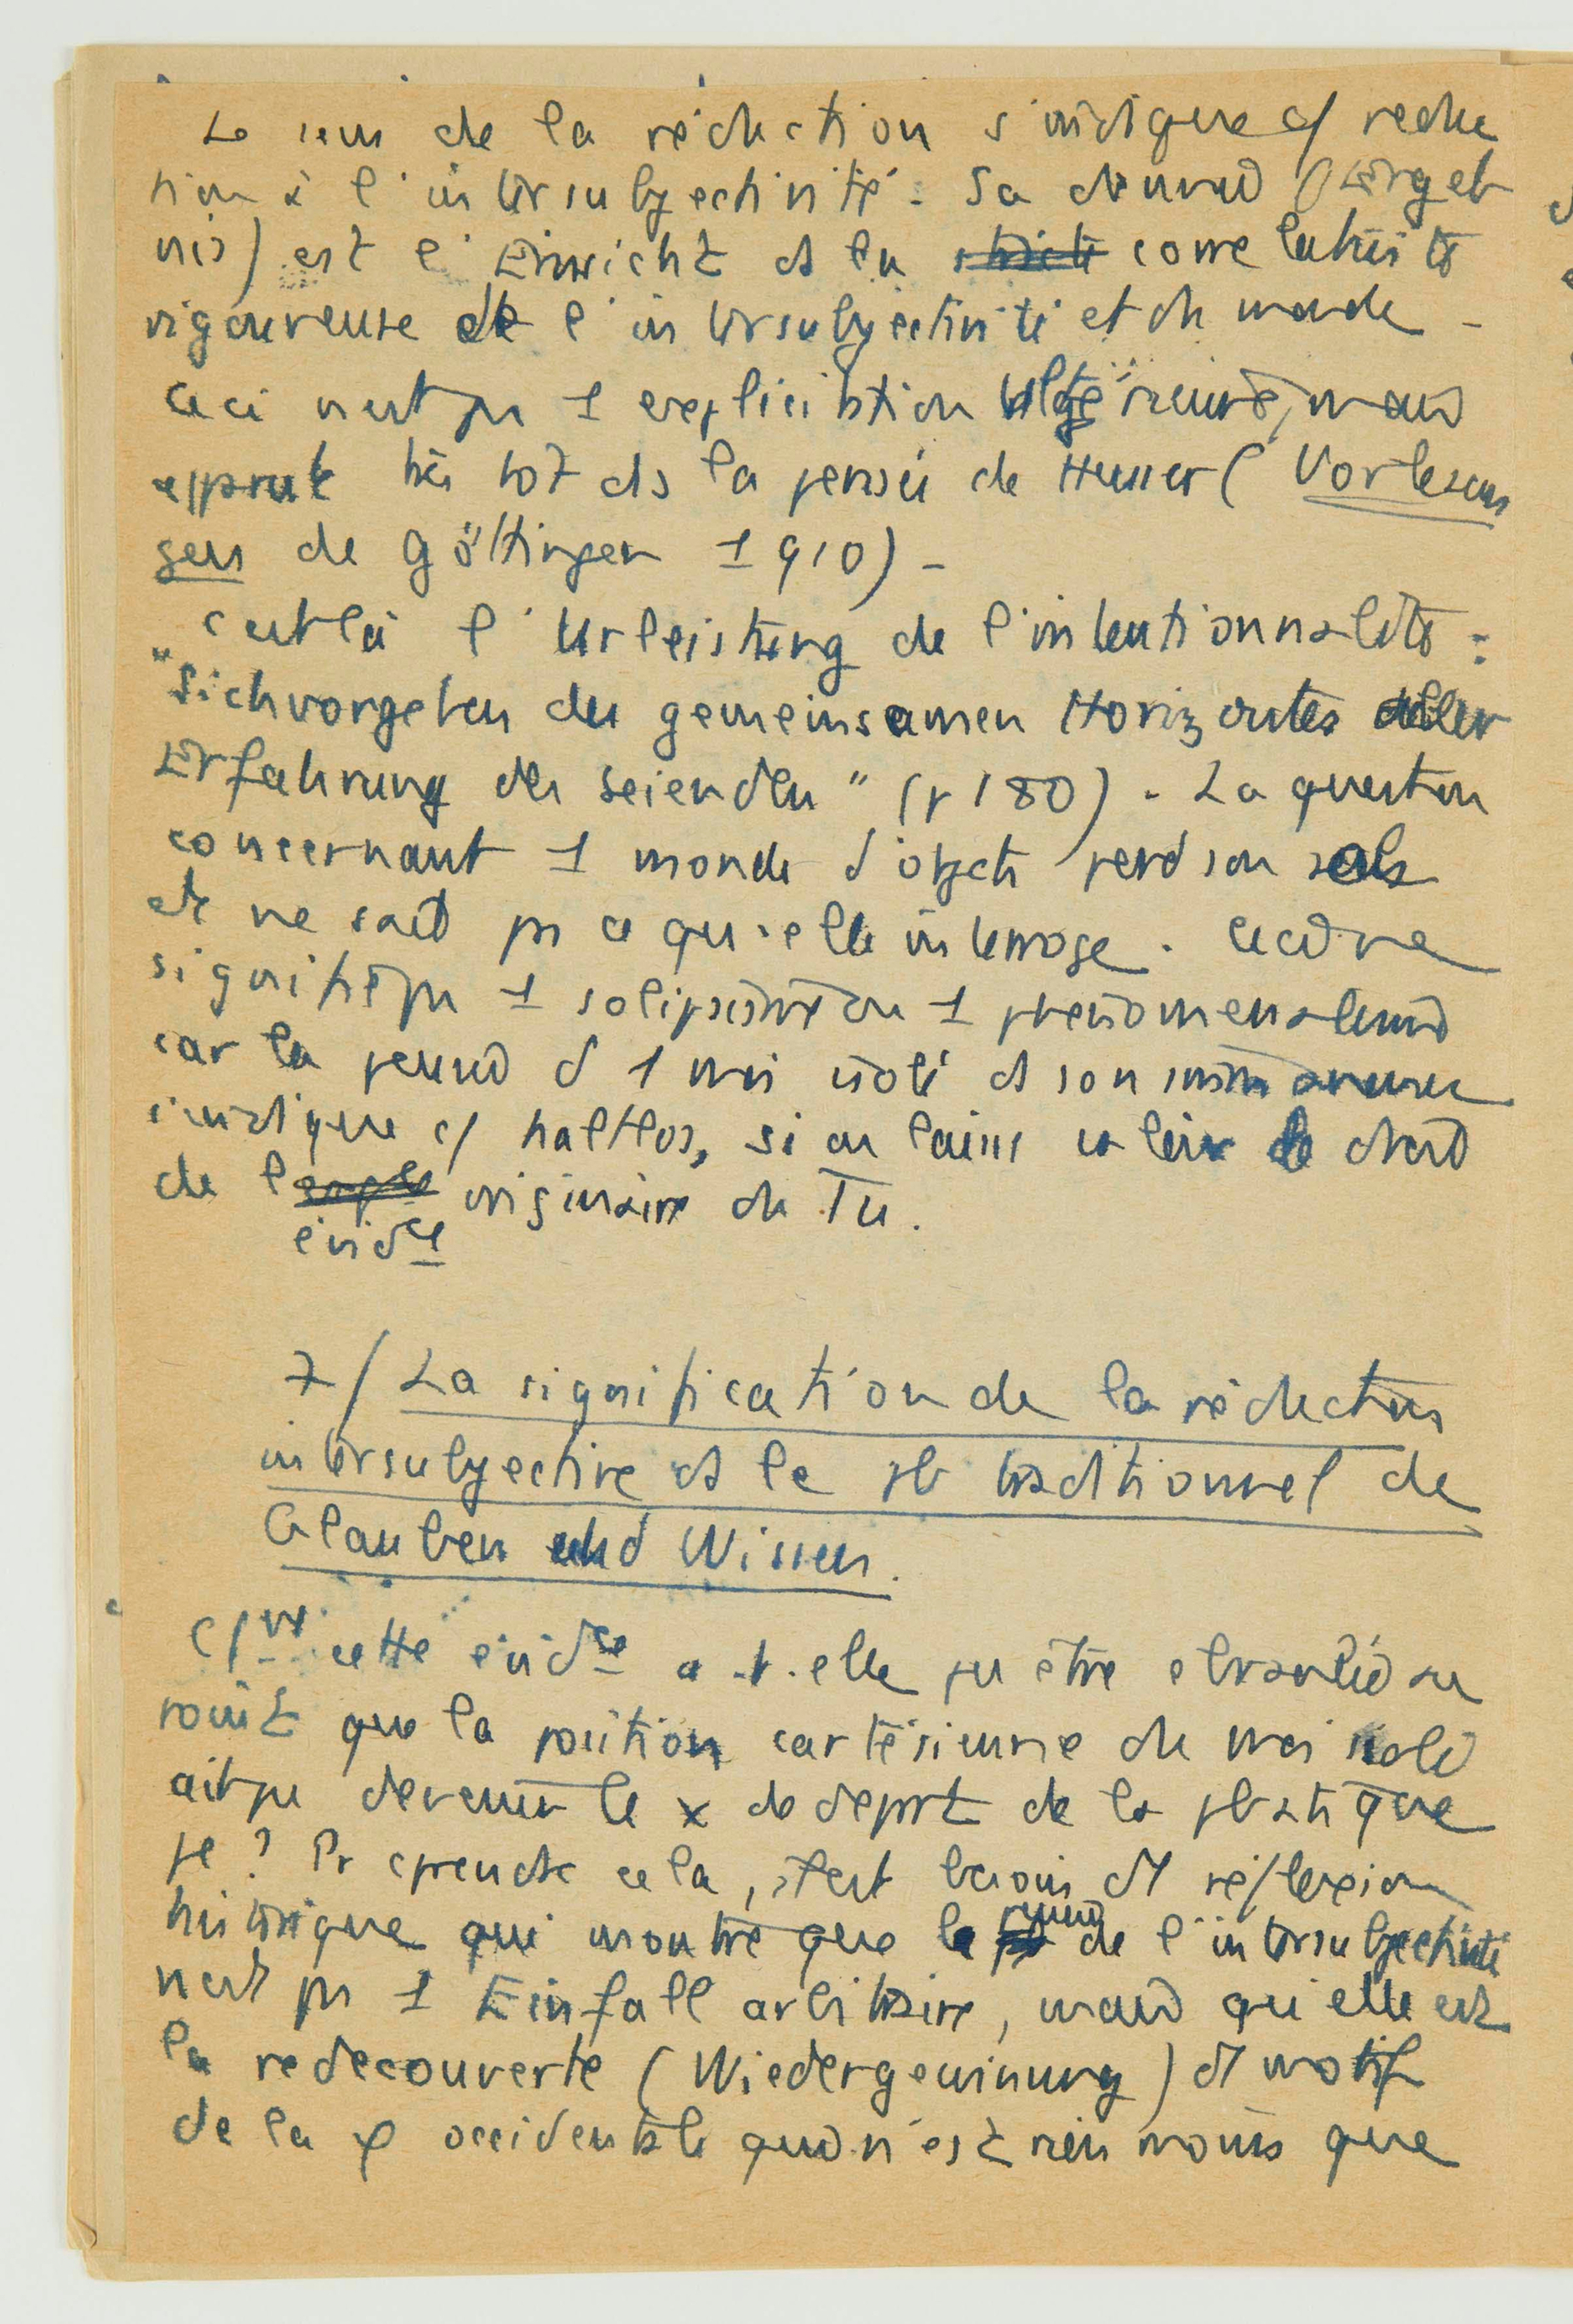 Le sens de la réduction s'indique c/ reduc
tion à l'intersubjectivité. Sa (Ergeb
nis) est l'Einsicht ds la stricte correlativité
rigoureuse de l'intersubjectivité et du monde -
Ceci n'est pas 1 explicitation ultérieure, mais
apparait très tot ds la pensée de Husserl (Vorlesun
gen de Göttingen 1910) -
C'est là l'Urleistung de l'intentionnalité :
"Sichvorgeben des gemeinsamen Horizontes aller
Erfahrung des Seienden" (p 180). La question
concernant 1 monde d'objets perd son sens
et ne sait pas ce qu'elle interroge. Ceci ne
signifie pas 1 solipsisme ou 1 phénoménalisme
car la pensée d'1 moi isolé ds son immanence
s'indique c/ haltlos, si on laisse valoir le droit
de l' originaire du Tu.
évidce
7/ La signification de la réduction
intersubjective ds le pb traditionnel de
Glauben und Wissen.
C/nt cette évidce a-t-elle pu être ebranlée au
point que la position cartésienne du moi isolé
ait pu devenir le x de depart de la pbatique
φe ? Pr cprendre cela, est besoin d'1 réflexion
historique qui montre que la pensée de l'intersubjectivité
n'est pas 1 Einfall arbitraire, mais qu'elle est
la redecouverte (Wiedergewinnung) d'1 motif
de la φ occidentale qui n'est rien moins que